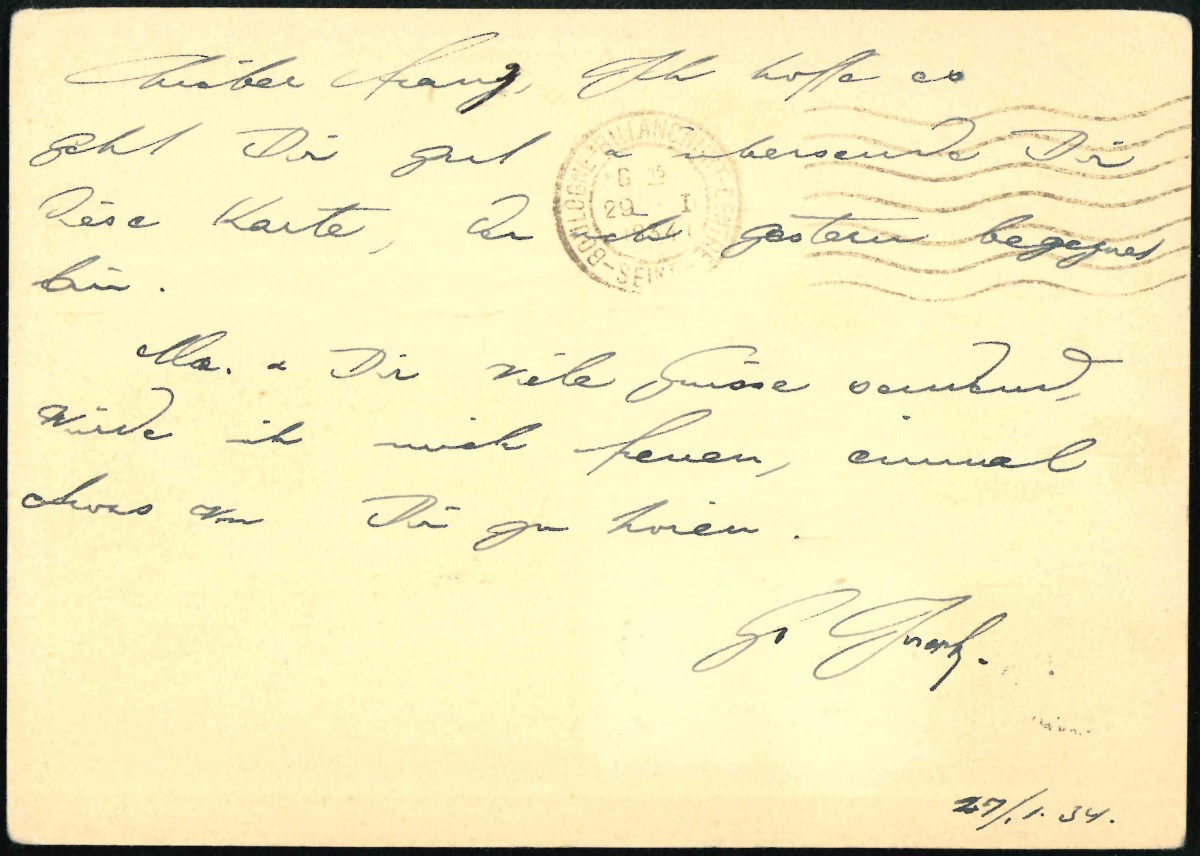 Lieber Franz, Ich hoffe es
geht Dir gut u übersende Dir
diese Karte, der ich gestern begegnet
bin.
Ma. u Dir viele Grüsse sendend,
würde ich mich freuen, einmal
etwas von Dir zu hören.
27/.1.34.
BOULOGNE-BILLANCOURT-CENTRE
6 12
29 I
1934
SEINE